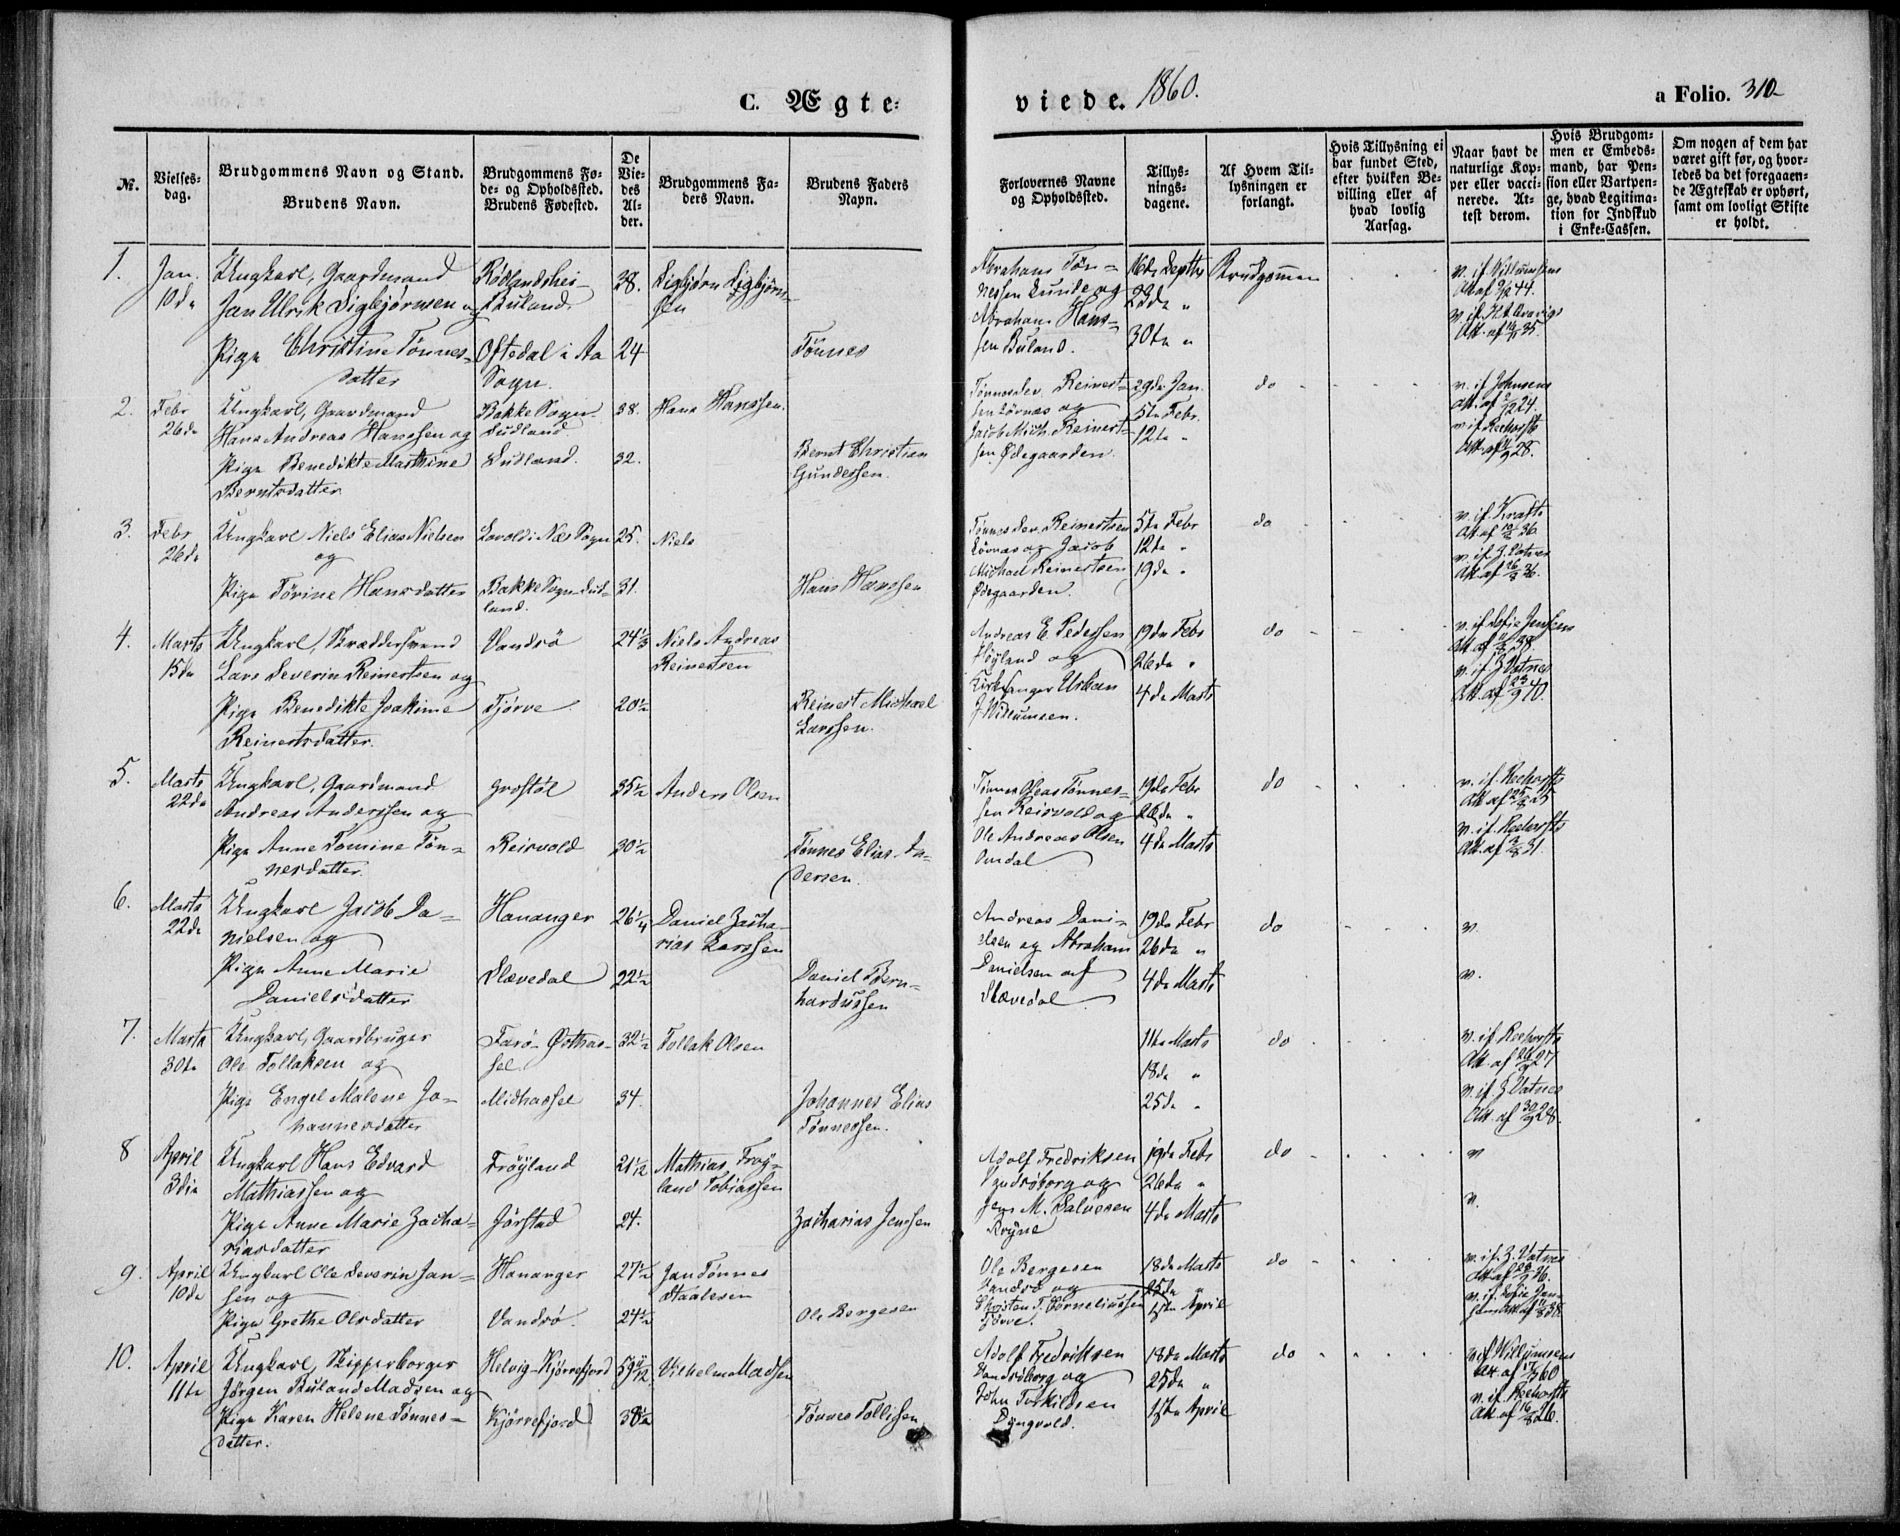 C. Ægte-
viede. 1860.
a Folio. 310
№.
Vielses-
dag.
Brudgommens Navn og Stand.
Brudens Navn.
Brudgommens Fø-
de- og Opholdssted.
Brudens Fødested.
De
Vie-
des
Al-
der.
Brudgommens Fa-
ders Navn.
Brudens Faders
Napn.
Forlovernes Navne
og Opholdssted.
Tillys-
nings-
dagene.
Af Hvem Til-
lysningen er
forlangt.
Hvis Tillysning ei
har fundet Sted,
efter hvilken Be-
villing eller af
hvad lovlig
Aarsag.
Naar havt de
naturlige Kop-
per eller vacci-
nerede. At-
test derom.
Hvis Brudgom-
men er Embeds-
mand, har Pen-
sion eller Vartpen-
ge, hvad Legitima-
tion for Indskud
i Enke-Cassen.
Om nogen af dem har
været gift før, og hvor-
ledes da det foregaaen-
de Ægteskab er ophørt,
samt om lovligt Skifte
er holdt.
1.
Jan.
10de
Ungkarl, Gaardmand
Jan Ulrik Sigbjørnsen og
Pige Christine Tønnes-
datter
Rødlandshei-
Buland
Oftedal i Aa
Sogn.
38.
24
Sigbjørn Sigbjørn-
sen
Tønnes
Abraham Tøn-
nessen Lunde og
Abraham Hans-
sen Buland.
16de Septbr
23de "
30te "
Brudgommen
v. if. Willumsens
Att. af 9/12 44.
2.
Febr
26de
Ungkarl, Gaardmand
Hans Andreas Hanssen og
Pige Benedikte Mathine
Berntsdatter
Bakke Sogn.
Sudland
Sudland.
38.
32.
Hans Hanssen.
Bernt Christian
Gundersen.
Tønnes Sev. Reinert-
sen Lövnas og
Jacob Mich. Reinert-
sen Ødegaarden.
29de Jan.
5te Febr.
12te "
do
v. if. Johnsens
v. if. Reehorsts
3.
Febr
26de
Ungkarl Niels Elias Nielsen
og
Pige Törine Hansdatter
Lavold i Næs Sogn
Bakke Sogn Sud-
land.
25.
31.
Niels
Hans Hanssen
Tønnes Sev. Reinertsen
Lövnas og Jacob
Michael Reinertsen
Ødegaarden.
5te Febr
12te "
19de "
do
v. if. Krafts
v. if. Z. Vatnes
4.
Marts
15de
Ungkarl, Skræddersvend
Lars Severin Reinertsen og
Pige Benedikte Joakime
Reinertsdatter.
Vandsö
Tjörve
24 1/3
20 1/2
Niels Andreas
Reinertsen
Reinert Michael
Larssen.
Andreas E. Pedersen
Höyland og
Kirkesanger Urban
J. Willumsen.
19de Febr
26de "
4de Marts
do
v. if. Sofie Jensens
v. if. Z Vatnes
Att. af 23/9 40.
5.
Marts
22de
Ungkarl, Gaardmand
Andreas Anderssen og
Pige Anne Tomine Tön-
nesdatter.
Grostöl
Reisvold
35 1/2
30 1/2
Anders Olsen
Tönnes Elias An-
dersen.
Tønnes Elias Tønnes-
sen Reisvold og
Ole Andreas Olsen
Omdal
19de Febr
26de "
4de Marts
do
v. if. Reehorsts
v. if. Reehorsts
6.
Marts
22de
Ungkarl Jacob Da-
nielsen og
Pige Anne Marie
Danielsdatter
Hananger
Slævedal
26 1/4
22 1/2
Daniel Zacha-
rias Larssen
Daniel Bern-
hardussen
Andreas Dani-
elsen og Abraham
Danielsen af
Slævedal
19de Febr
26de "
4de Marts
do
v.
v.
7.
Marts
30te
Ungkarl, Gaardbruger
Ole Tollaksen og
Pige Engel Malene Jo-
hannesdatter
Farö- Østhas-
sel.
Midhassel
32 1/2
34.
Tollak Olsen
Johannes Elias
Tönnessen.
11te Marts
18de "
25de "
do
v. if. Reehorsts
v. if. Z Vatnes
8
April
3die
Ungkarl Hans Edvard
Mathiassen og
Pige Anne Marie Zacha-
riasdatter
Fröyland
Jörstad
21 1/12
24.
Mathias Fröy-
land Tobiassen
Zacharias Jenssen
Adolf Fredriksen
Vandsöborg og
Jens M. Salvesen
Bryne
19de Febr
26de "
4de Marts
do
v
v.
9.
April
10de
Ungkarl Ole Severin Jan-
sen og
Pige Grethe Olsdatter
Hananger
Vandsö.
27 1/2
24 1/2
Jan Tönnes
Staalesen
Ole Bergesen
Ole Bergesen
Vandsö og
Christen T. Corneliussen
Tjörve.
18de Marts
25de "
1ste April
do
v. if. Z. Vatnes
v. if. Sofie Jan-
10.
April
11te
Ungkarl, Skipperborger
Jörgen Buland Madsen og
Pige Karen Helene Tønnes-
datter.
Helvig-Kjörrefjord
Kjörrefjord
38 1/2
Vilhelm Madsen
Tönnes Tollissen
Adolf Fredriksen
Vandsöborg og
John Torkildsen
Lyngvold.
18de Marts
25de "
1ste April
do
v. if. Willumsens
v. if. Reehorsts
Att. af 16/8 26.